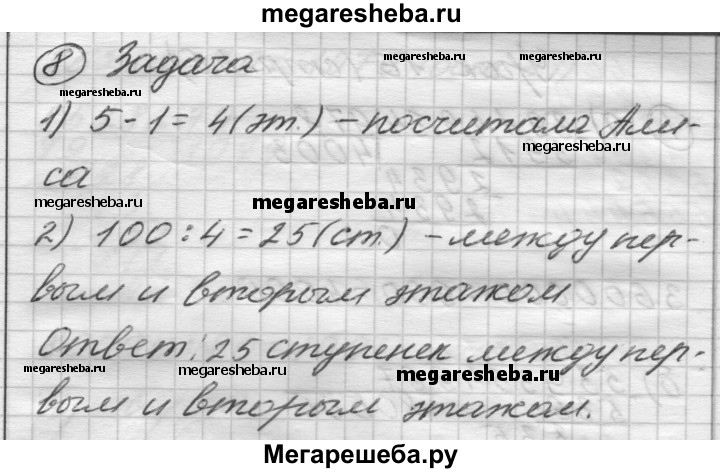 megaresheba.ru
8 Задача
megaresheba.ru
megaresheba.ru
1) 5-1= 4(эт.) – посчитала Али-
megaresheba.ru
са
megaresheba.ru
megaresheba.ru
2) 100:4=25(ст.) – между пер-
megaresheba.ru
вым и вторым этажом
Ответ: 25 ступенек между пер-
megaresheba.ru
megaresheba.ru
megaresheba.ru
вым и вторым этажом.
Мегарешеба.ру